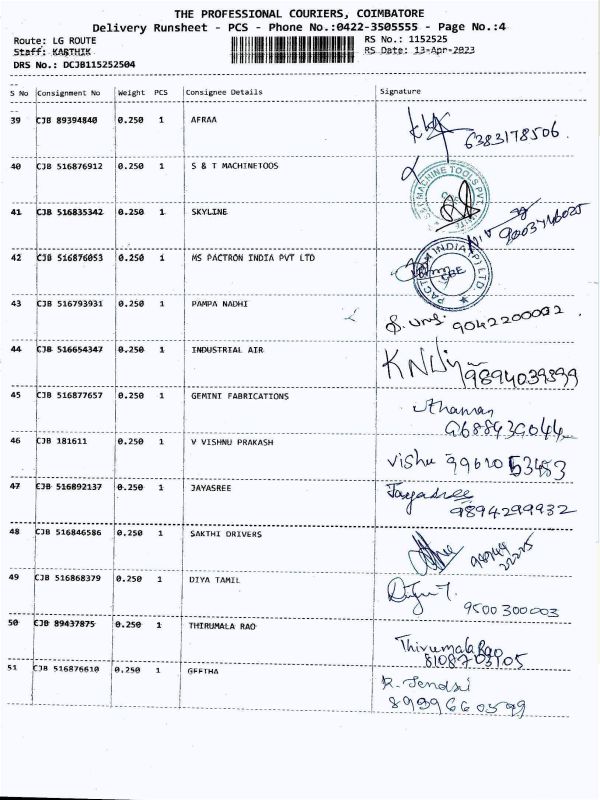 THE PROFESSIONAL COURIERS, COIMBATORE
Delivery Runsheet - PCS - Phone No.:0422-3505555 - Page No.:4
Route: LG ROUTE RS No.: 1152525
Staff: KARTHIK RS Date: 13-Apr-2023
DRS No.: DCJB115252504
S No Consignment No Weight PCS Consignee Details Signature
39 CJB 89394840 0.250 1 AFRAA
6383178506.
40 CJB 516876912 0.250 1 S & T MACHINETOOS
S&T MACHINE TOOLS PVT.
41 CJB 516835342 0.250 1 SKYLINE
9003746025
42 CJB 516876053 0.250 1 MS PACTRON INDIA PVT LTD
PACTRON INDIA (P) LTD
CBE
43 CJB 516793931 0.250 1 PAMPA NADHI
9042200002.
44 CJB 516654347 0.250 1 INDUSTRIAL AIR
9894039899
45 CJB 516877657 0.250 1 GEMINI FABRICATIONS
46 CJB 181611 0.250 1 V VISHNU PRAKASH
Vishu 9961053453
47 CJB 516892137 0.250 1 JAYASREE
Jayasree
9894299932
48 CJB 516846586 0.250 1 SAKTHI DRIVERS
49 CJB 516868379 0.250 1 DIYA TAMIL
9500300003
50 CJB 89437875 0.250 1 THIRUMALA RAO
Thirumala Rao
8108703105
51 CJB 516876610 0.250 1 GEETHA